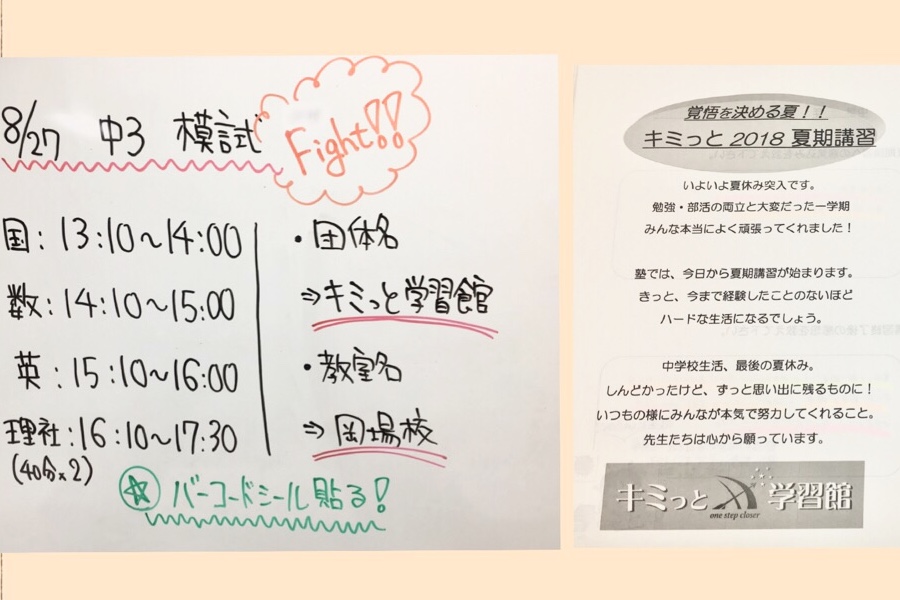 8/27 中3 模試
Fight!!
国：13:10〜14:00
数：14:10〜15:00
英：15:10〜16:00
理社：16:10〜17:30
(40分×2)
・団体名
⇒キミっと学習館
・教室名
⇒岡場校
☆バーコードシール貼る！
覚悟を決める夏！！
キミっと 2018 夏期講習
いよいよ夏休み突入です。
勉強・部活の両立と大変だった一学期
みんな本当によく頑張ってくれました！
塾では、今日から夏期講習が始まります。
きっと、今まで経験したことのないほど
ハードな生活になるでしょう。
中学校生活、最後の夏休み。
しんどかったけど、ずっと思い出に残るものに！
いつもの様にみんなが本気で努力してくれること。
先生たちは心から願っています。
キミっと 学習館
one step closer